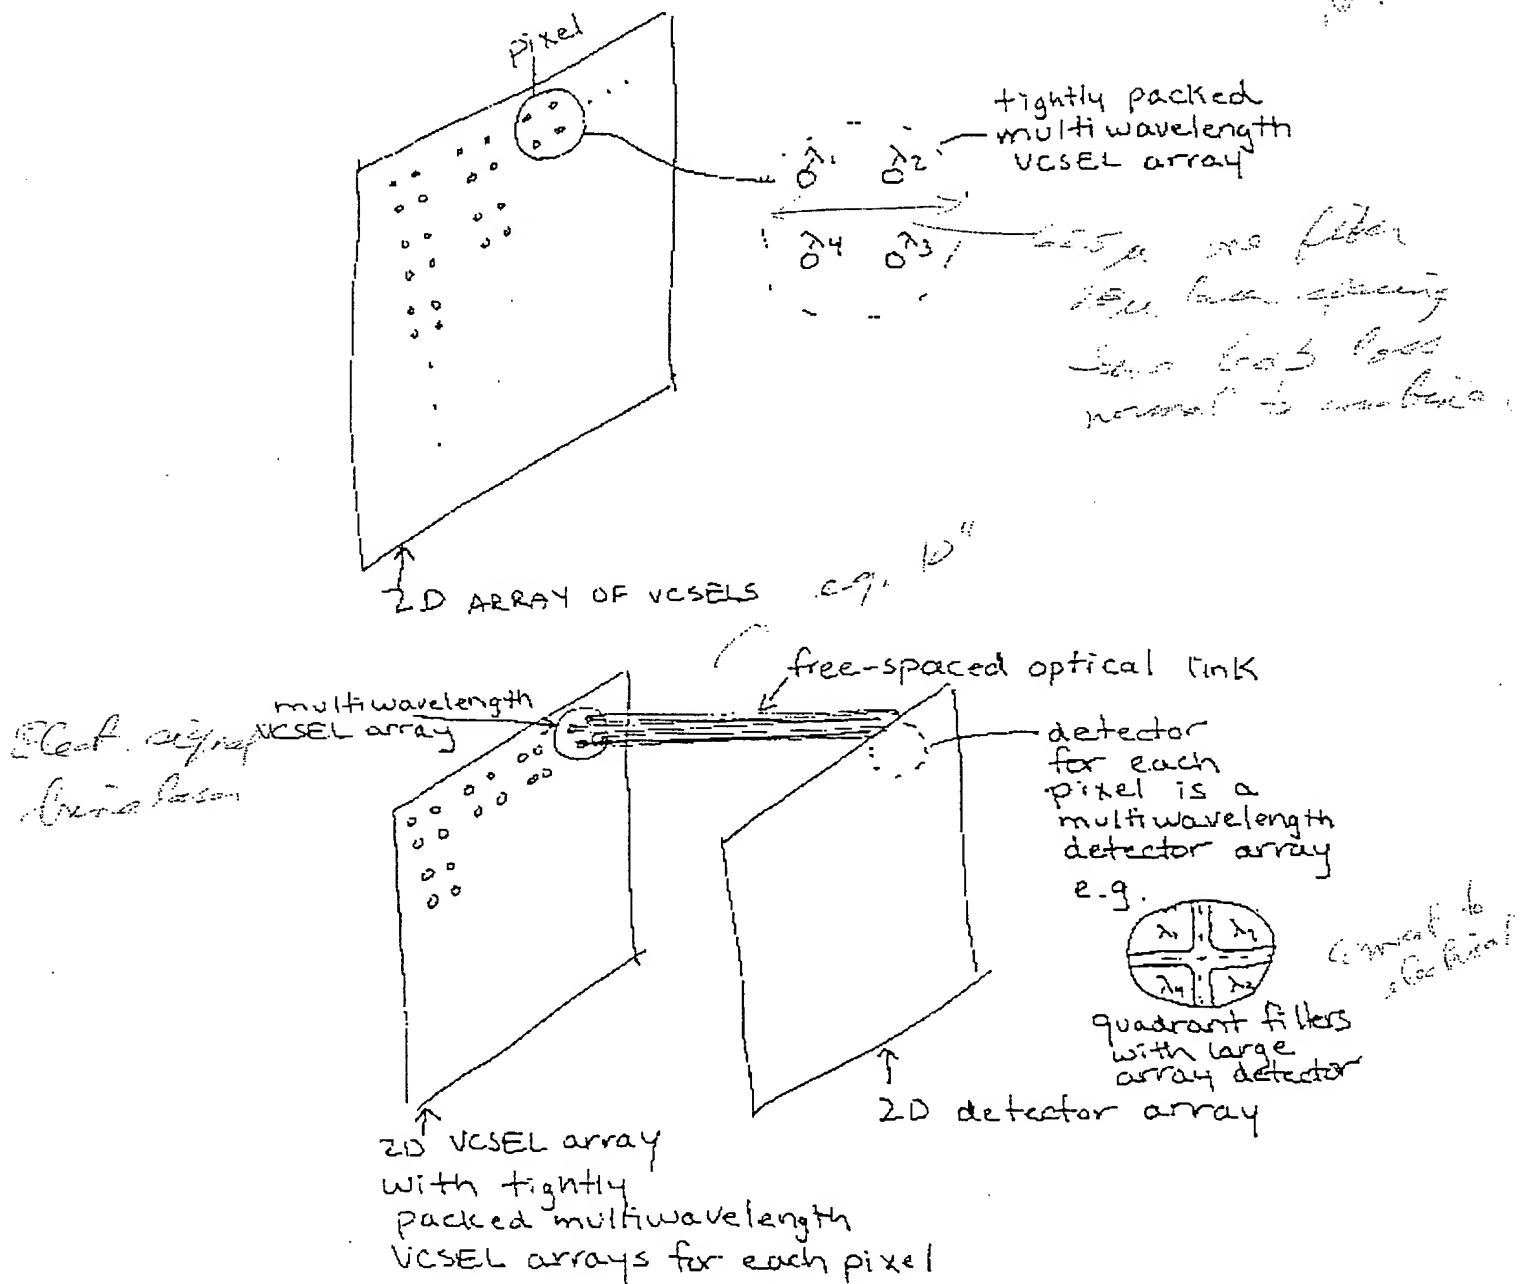 pixel
tightly packed
multiwavelength
VCSEL array
λ1 λ2
λ4 λ3
fiber
spacing
loss
normal to
2D ARRAY OF VCSELS
e.g. 10"
free-spaced optical link
multiwavelength
VCSEL array
Elect. signal
detector
for each
pixel is a
multiwavelength
detector array
e.g.
λ1 λ2
λ4 λ3
to
quadrant filters
with large
array detector
2D detector array
2D VCSEL array
with tightly
packed multiwavelength
VCSEL arrays for each pixel